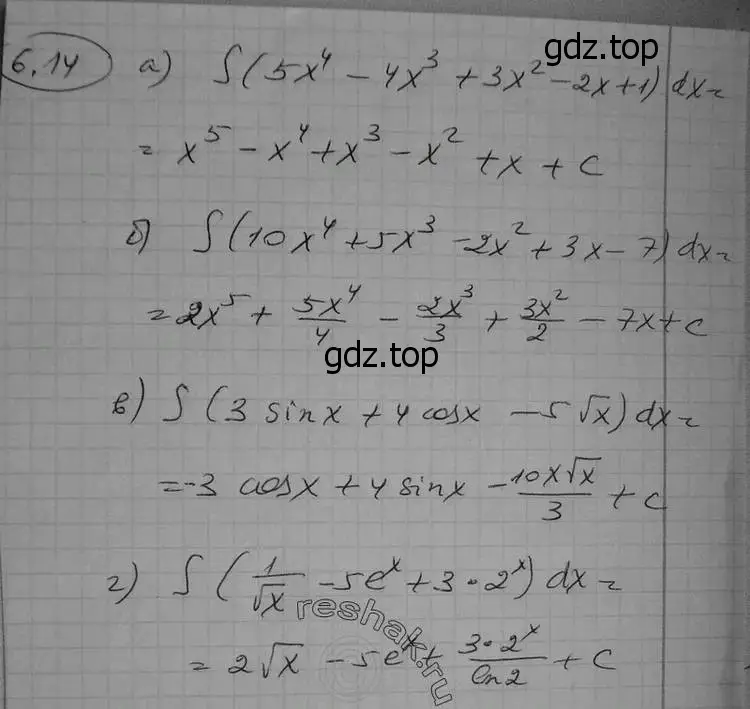 gdz.top
6.14 а) ∫(5x⁴ − 4x³ + 3x² − 2x + 1) dx =
= x⁵ − x⁴ + x³ − x² + x + c
б) ∫(10x⁴ + 5x³ − 2x² + 3x − 7) dx =
= 2x⁵ + 5x⁴/4 − 2x³/3 + 3x²/2 − 7x + c
gdz.top
в) ∫(3 sin x + 4 cos x − 5√x) dx =
= −3 cos x + 4 sin x − 10x√x/3 + c
г) ∫(1/√x − 5eˣ + 3·2ˣ) dx =
= 2√x − 5eˣ + 3·2ˣ/ln 2 + c
reshak.ru